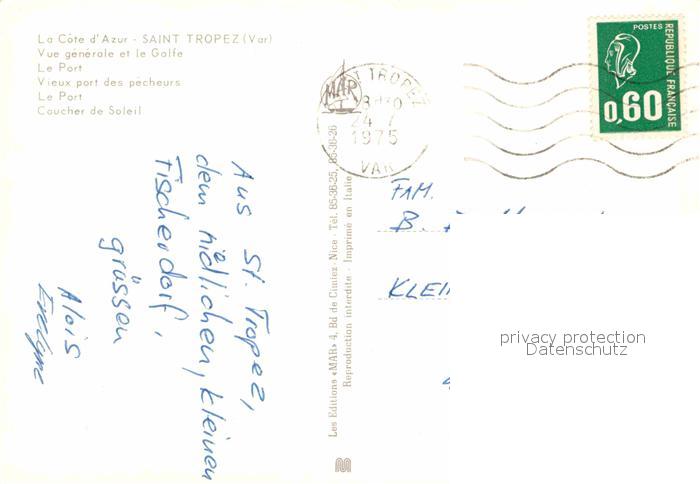 La Côte d'Azur - SAINT TROPEZ (Var)
Vue générale et le Golfe
Le Port
Vieux port des pêcheurs
Le Port
Coucher de Soleil
Aus St. Tropez,
dem nidlichen, kleinen
Fischerdorf,
grüssen
Alois
Evelyne
Les Editions «MAR» 4, Bd de Cimiez - Nice - Tél. 85-36-25, 85-36-26
Reproduction interdite - Imprimé en Italie
MAR
T TROPEZ
24 7
1975
VAR
POSTES
REPUBLIQUE FRANÇAISE
0,60
FAM.
B.
KLEI
privacy protection
Datenschutz